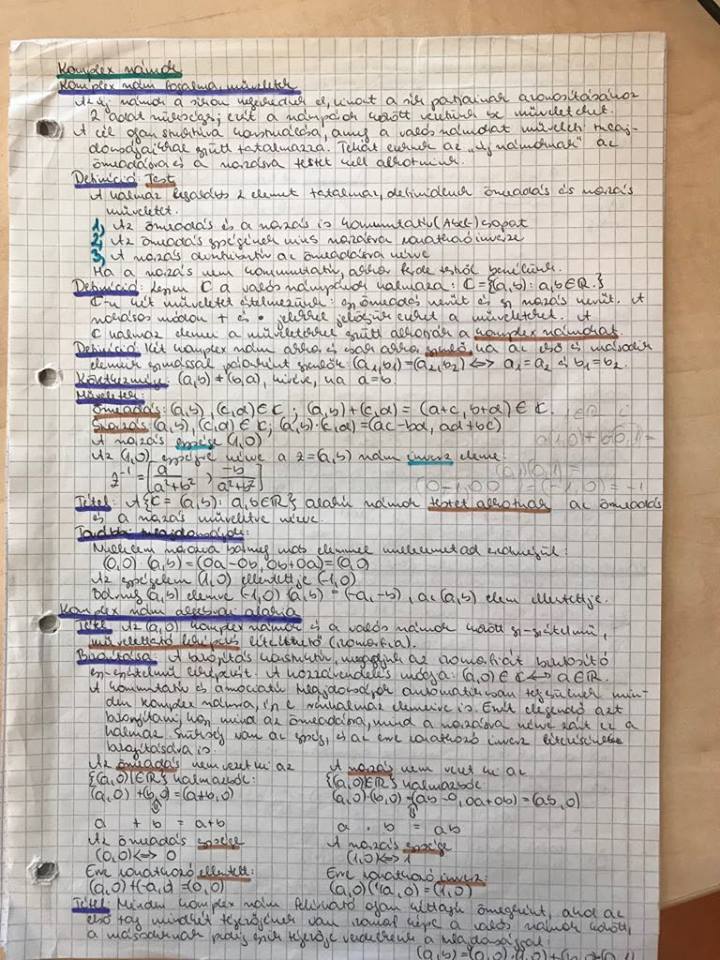 Komplex számok
Komplex szám fogalma, műveletek
Az új számok a síkon helyezkednek el, mivel a sík pontjainak azonosításához
2 adat szükséges, ezért a számpárok között vezetünk be műveleteket.
A cél olyan struktúra konstruálása, amely a valós számokat műveleti tulaj-
donságaikkal együtt tartalmazza. Tehát ezeknek az „új számoknak" az
összeadásra és a szorzásra testet kell alkotniuk.
Definíció: Test
A halmaz legalább 2 elemet tartalmaz, definiálunk összeadás és szorzás
műveletet.
1, Az összeadás és a szorzás is kommutatív (Abel-) csoport
2, Az összeadás egységének nincs szorzásra vonatkozó inverze
3, A szorzás disztributív az összeadásra nézve
Ha a szorzás nem kommutatív, akkor ferde testről beszélünk.
Definíció: Legyen ℂ a valós számpárok halmaza: ℂ={(a,b): a,b∈ℝ.}
ℂ-n két műveletet értelmezünk: egy összeadás nevűt és egy szorzás nevűt. A
szokásos módon + és • jelekkel jelöljük ezeket a műveleteket. A
ℂ halmaz elemei a műveletekkel együtt alkotják a komplex számokat.
Definíció: Két komplex szám akkor és csak akkor egyenlő, ha az első és második
elemeik egymással páronként egyenlők: (a₁,b₁)=(a₂,b₂) <=> a₁=a₂ és b₁=b₂.
Következmény: (a,b)≠(b,a), kivéve, ha a=b.
Műveletek:
Összeadás: (a,b), (c,d)∈ℂ ; (a,b)+(c,d)= (a+c, b+d)∈ℂ.
Szorzás: (a,b), (c,d)∈ℂ; (a,b)·(c,d)=(ac-bd, ad+bc)
A szorzás egysége (1,0)
Az (1,0) egységre nézve a z=(a,b) szám inverz eleme:
z⁻¹ = [a/(a²+b²) , -b/(a²+b²)]
Tétel: A {ℂ=(a,b): a,b∈ℝ} alakú számok testet alkotnak az összeadás
és a szorzás műveletére nézve.
További megjegyzések:
(0,0)(a,b)=(0a-0b, 0b+0a)=(0,0)
Az egységelem (1,0) ellentettje (-1,0)
Bármely (a,b) elemre (-1,0)(a,b) = (-a,-b), az (a,b) elem ellentettje.
Komplex szám algebrai alakja
Tétel: Az (a,0) komplex számok és a valós számok között egy-egyértelmű,
művelettartó leképezés létesíthető (izomorfia).
Bizonyítás: A bizonyítás konstruktív, megadjuk az izomorfiát biztosító
egy-egyértelmű leképezést. A hozzárendelés módja: (a,0)∈ℂ <-> a∈ℝ.
A kommutatív és asszociatív tulajdonságok automatikusan teljesülnek min-
den komplex számra, így e részhalmaz elemeire is. Ezért elegendő azt
bizonyítani, hogy mind az összeadásra, mind a szorzásra nézve zárt ez a
halmaz. Szükség van az egység, és az erre vonatkozó inverz létezésének
bizonyítására is.
Az összeadás nem vezet ki az
{(a,0)|∈ℝ} halmazból:
(a,0)+(b,0)=(a+b,0)
a + b = a+b
Az összeadás egysége
(0,0)<=>0
Erre vonatkozó ellentett:
(a,0)+(-a,0)=(0,0)
A szorzás nem vezet ki az
{(a,0)|∈ℝ} halmazból
(a,0)·(b,0)=(ab-0, 0a+0b)=(ab,0)
a · b = ab
A szorzás egysége
(1,0)<=>1
Erre vonatkozó inverz:
(a,0)(1/a,0)=(1,0)
Tétel: Minden komplex szám felírható olyan kéttagú összegként, ahol az
első tag mindkét tényezőjének van izomorf képe a valós számok között,
a másodiknak pedig egyik tényezője rendelkezik e tulajdonsággal: